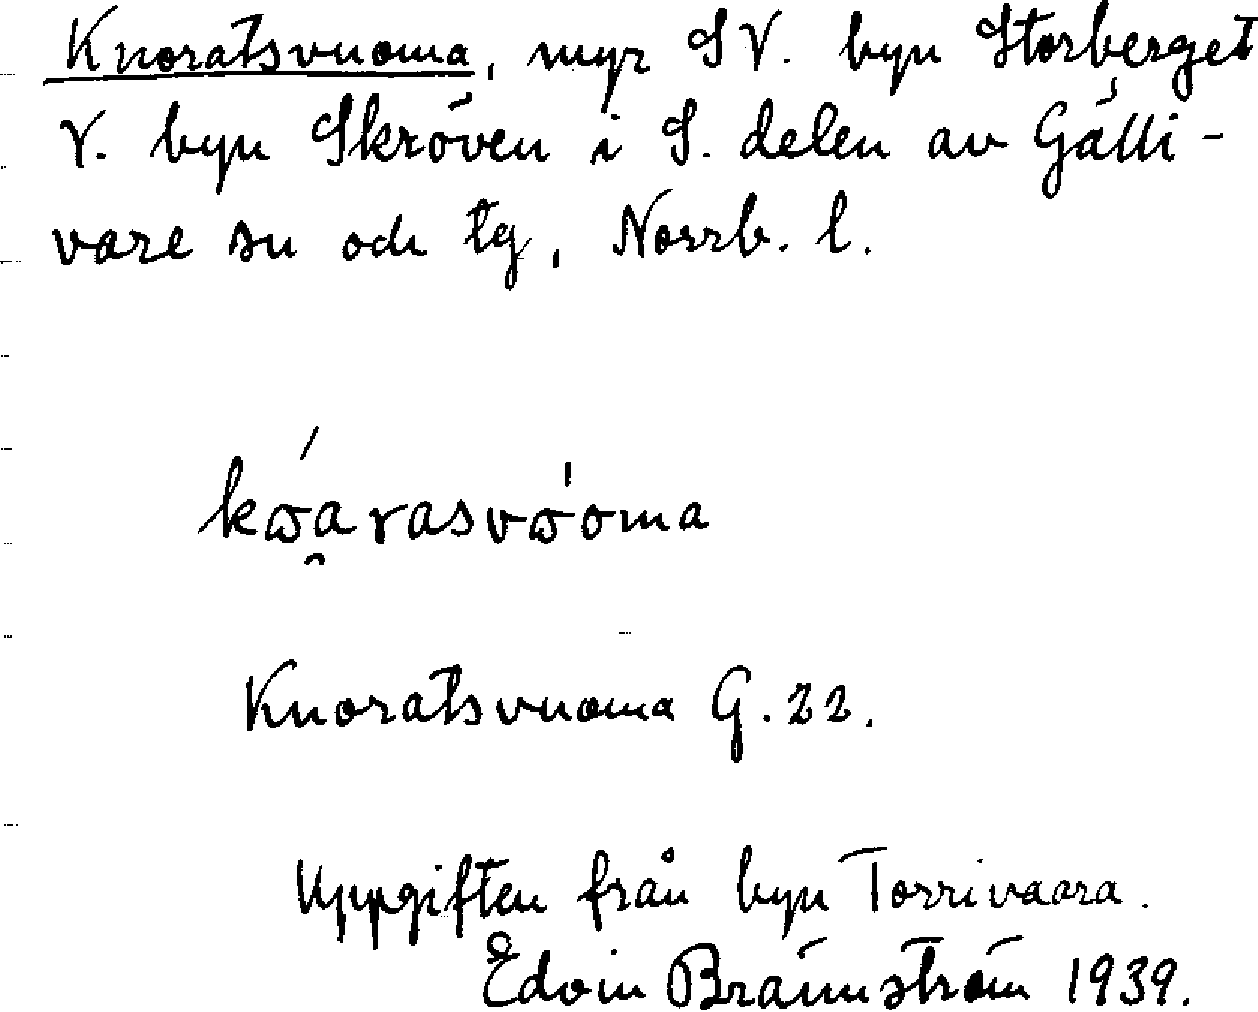 Kuoratsvuoma, myr SV. byn Storberget
V. byn Skröven i S. delen av Gälli-
vare sn och tg, Norrb. l.
kɷ́a̯rasvɷ́oma
Kuoratsvuoma G. 22.
Uppgiften från byn Torrivaara.
Edvin Brännström 1939.